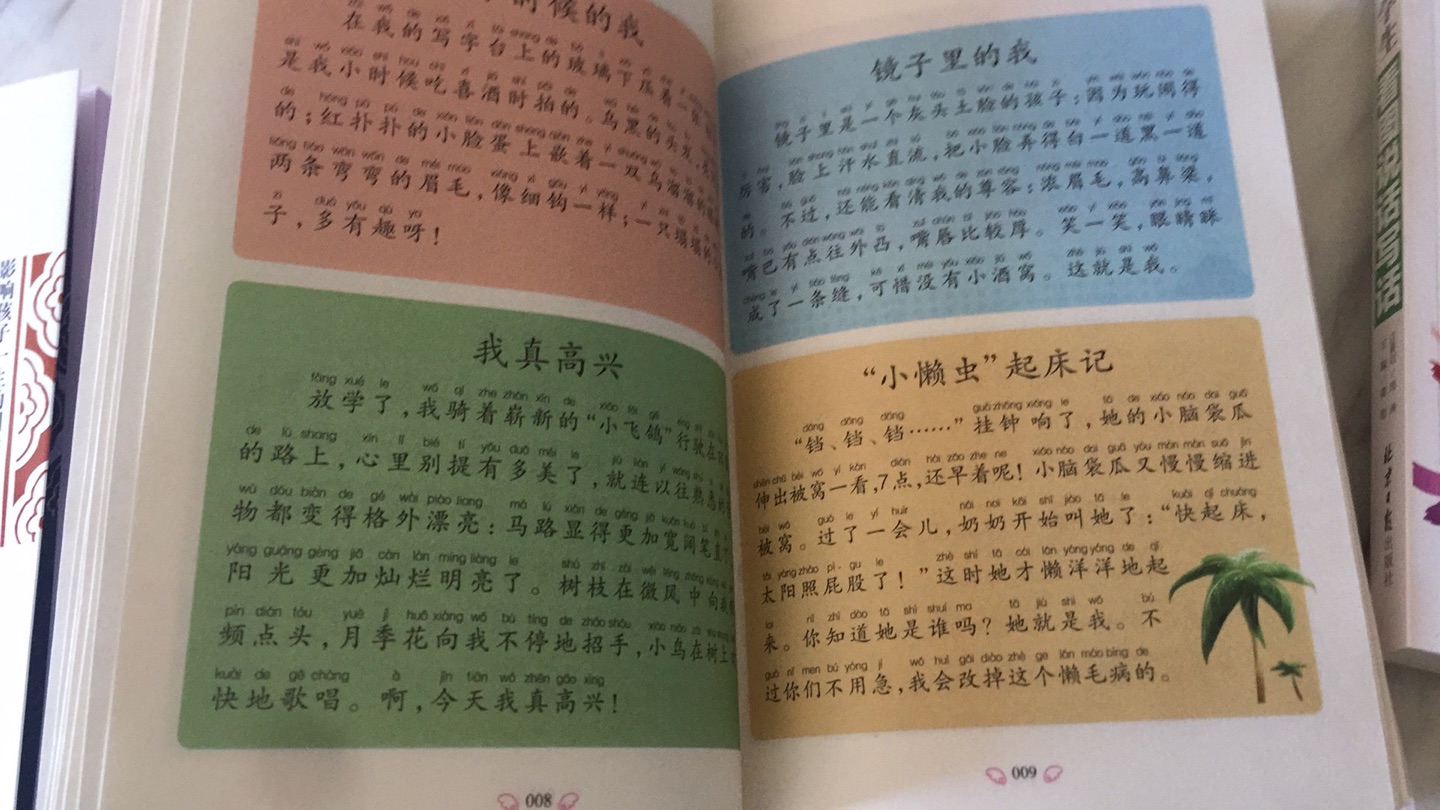 时候的我
在我的写字台上的玻璃下压着一张
是我小时候吃喜酒时拍的。乌黑的头发,
的;红扑扑的小脸蛋上嵌着一双乌溜溜的
两条弯弯的眉毛,像细钩一样;一只塌塌的
子,多有趣呀!
我真高兴
放学了,我骑着崭新的“小飞鸽”行驶在
的路上,心里别提有多美了,就连以往熟悉的
物都变得格外漂亮:马路显得更加宽阔笔直
阳光更加灿烂明亮了。树枝在微风中向我
频点头,月季花向我不停地招手,小鸟在树上
快地歌唱。啊,今天我真高兴!
008
镜子里的我
镜子里是一个灰头土脸的孩子:因为玩闹得
厉害,脸上汗水直流,把小脸弄得白一道黑一道
的。不过,还能看清我的尊容:浓眉毛,高鼻梁,
嘴巴有点往外凸,嘴唇比较厚。笑一笑,眼睛眯
成了一条缝,可惜没有小酒窝。这就是我。
“小懒虫”起床记
“铛、铛、铛……”挂钟响了,她的小脑袋瓜
伸出被窝一看,7点,还早着呢!小脑袋瓜又慢慢缩进
被窝。过了一会儿,奶奶开始叫她了:“快起床,
太阳照屁股了!”这时她才懒洋洋地起
来。你知道她是谁吗?她就是我。不
过你们不用急,我会改掉这个懒毛病的。
009
影响孩子一生的
学生看图说话写话
出版社